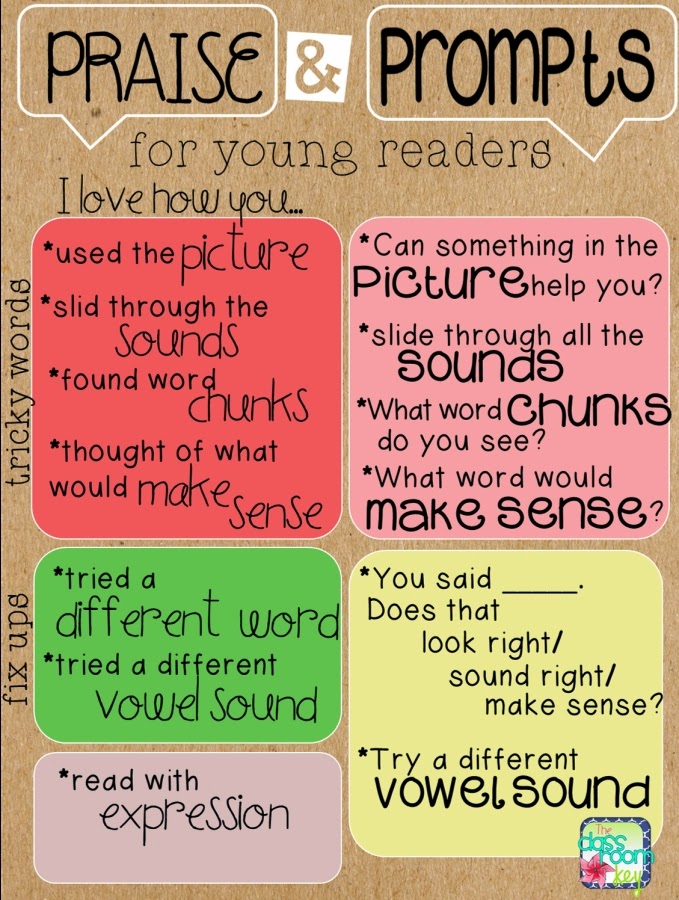 PRAISE & PROMPTS
for young readers
I love how you...
tricky words
*used the picture
*slid through the
sounds
*found word
chunks
*thought of what
would make
sense
*Can something in the
Picture help you?
*slide through all the
sounds
*What word CHUNKS
do you see?
*What word would
make sense?
fix ups
*tried a
different word
*tried a different
vowel sound
*You said _____.
Does that
look right/
sound right/
make sense?
*Try a different
vowel sound
*read with
expression
The
class
room
key